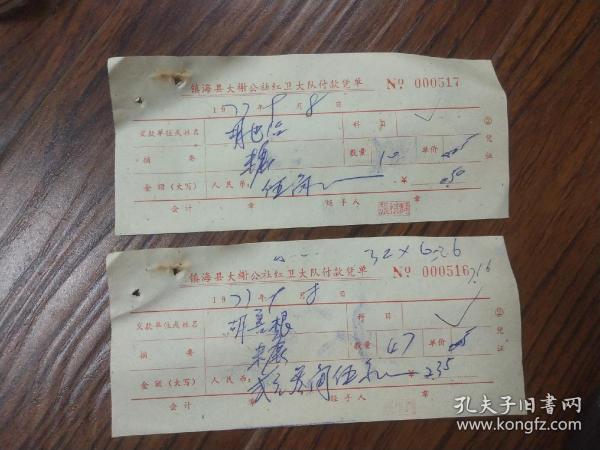 镇海县大榭公社红卫大队付款凭单 Nº 000517
1977年9月8日
交款单位或姓名 科目
摘要 米糠 数量 10 单价 .05
金额(大写) 人民币: 伍角 ¥ 0.50
会计 章 经手人 章
②凭证
32×6=26
镇海县大榭公社红卫大队付款凭单 Nº 000516
1977年9月8日
交款单位或姓名 胡善根 科目
摘要 米糠 数量 47 单价 .05
金额(大写) 人民币: 弍元叁角伍分 ¥ 2.35
会计 章 经手人 章
②凭证
孔夫子旧书网
www.kongfz.com